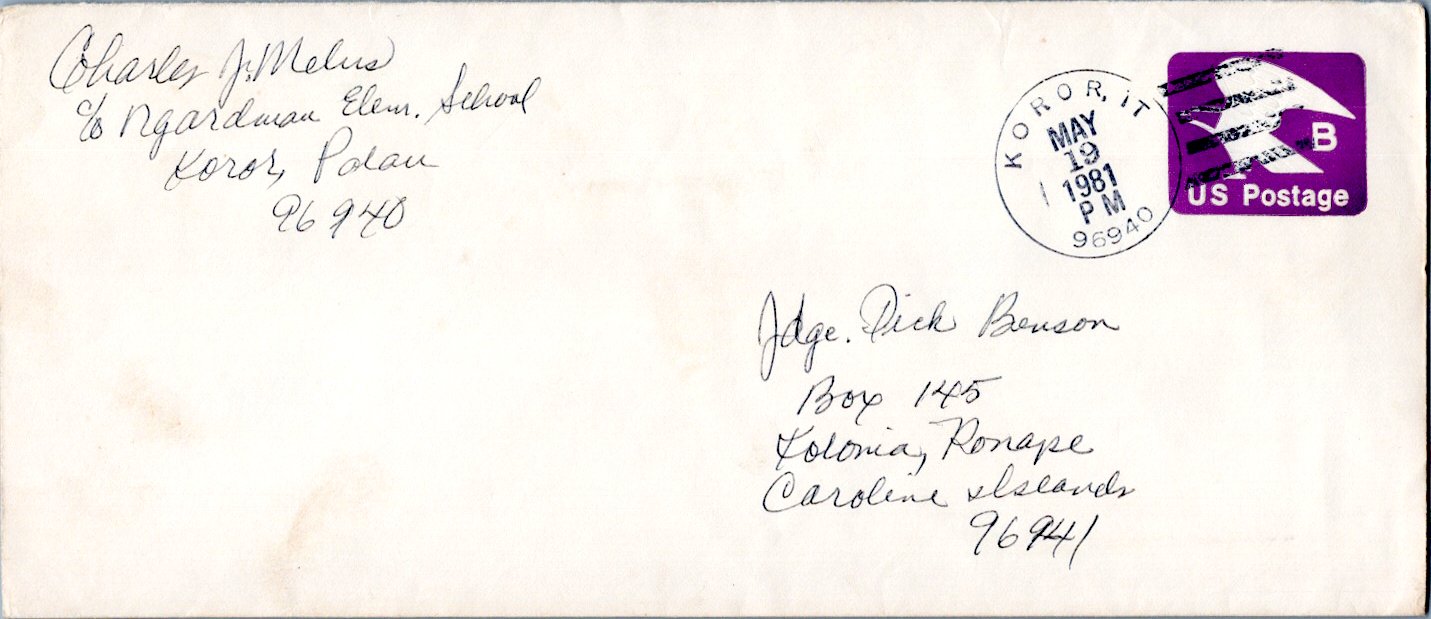 Charles J. Melus
c/o Ngardmau Elem. School
Koror, Palau
96940
KOROR, TT
MAY
19
1981
PM
96940
B
US Postage
Jdge. Dick Benson
Box 145
Kolonia, Ponape
Caroline Islands
96941